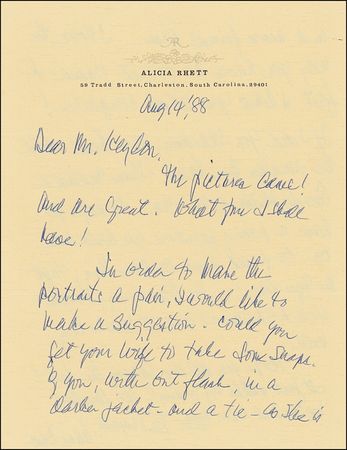 AR
ALICIA RHETT
59 Tradd Street, Charleston, South Carolina, 29401
Aug 14 '88
Dear Mr. 
The pictures came!
And are great. What fun I shall
have!
In order to make the
portraits a pair, I would like to
make a suggestion - could you
get your wife to take some snaps
of you, without flash, in a
darker jacket - and a tie - as she is